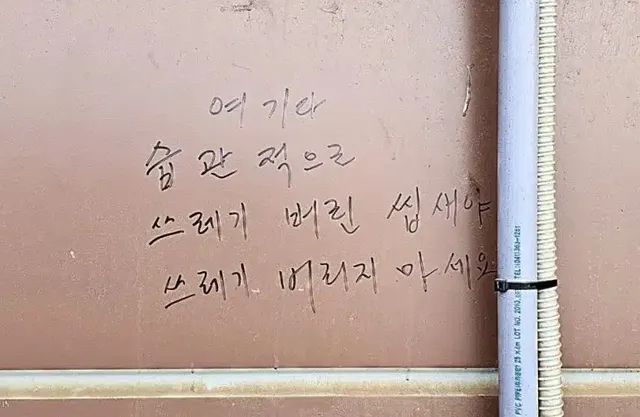 여기다
습관적으로
쓰레기 버린 씹새야
쓰레기 버리지 마세요